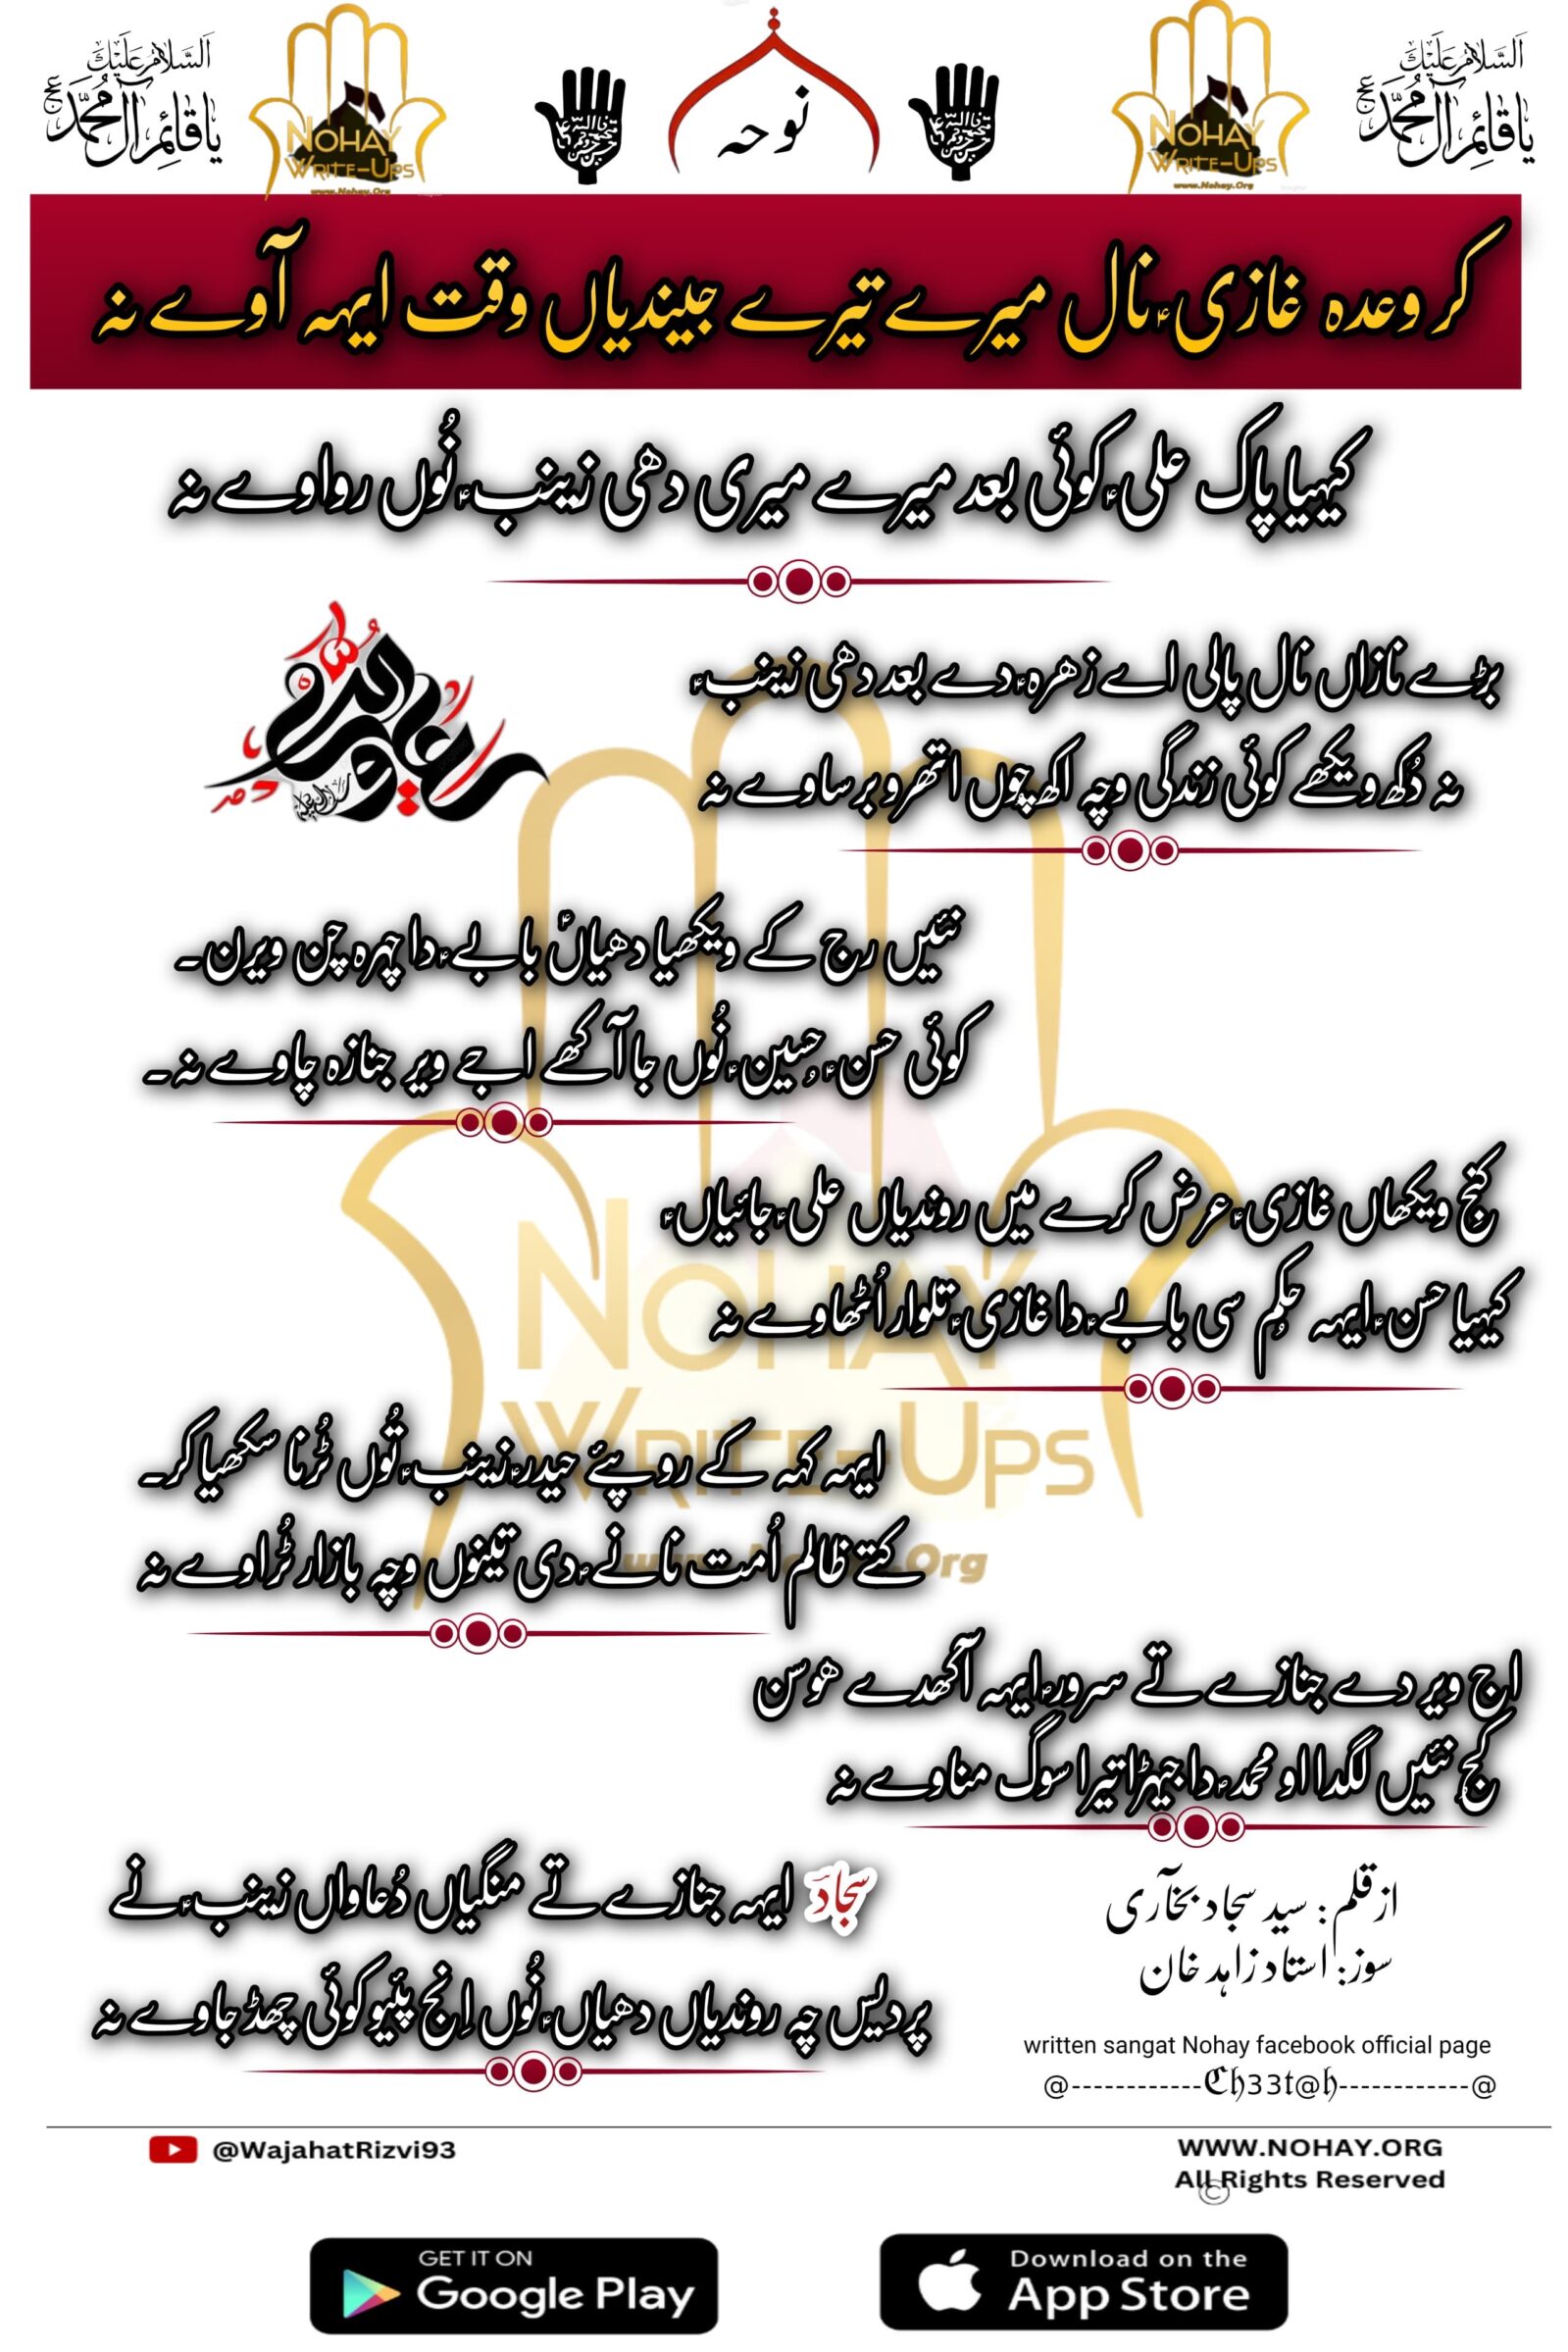 السلام علیک
یا قائم آل محمد عج
NOHAY
WRITE-UPS
www.Nohay.Org
نوحہ
NOHAY
WRITE-UPS
www.Nohay.Org
السلام علیک
یا قائم آل محمد عج
کر وعدہ غازیؑ نال میرے تیرے جیندیاں وقت ایہہ آوے نہ
کیہیا پاک علیؑ کوئی بعد میرے میری دھی زینبؑ نُوں رواوے نہ
بڑے نازاں نال پالی اے زھرہؑ دے بعد دھی زینبؑ
نہ دُکھ ویکھے کوئی زندگی وچہ اکھ چوں اتھرو برساوے نہ
نئیں رج کے ویکھیا دھیاںؑ بابےؑ دا چہرہ چن ویرن۔
کوئی حسنؑ حُسینؑ نُوں جا آکھے اجے ویر جنازہ چاوے نہ۔
کنج ویکھاں غازیؑ عرض کرے میں روندیاں علیؑ جائیاںؑ
کیہیا حسنؑ ایہہ حکم سی بابےؑ دا غازیؑ تلوار اُٹھاوے نہ
ایہہ کہہ کے روپئے حیدرؑ زینبؑ تُوں ٹُرنا سکھیا کر۔
کتے ظالم اُمت نانےؑ دی تینوں وچہ بازار ٹُراوے نہ
اج ویر دے جنازے تے سرورؑ ایہہ آکھدے ھوسن
کجُ نئیں لگدا او محمدؑ دا جیہڑا تیرا سوگ مناوے نہ
سجاد ایہہ جنازے تے منگیاں دُعاواں زینبؑ نے
پردیس چہ روندیاں دھیاںؑ نُوں اِنج پئیو کوئی چھڈ جاوے نہ
از قلم: سید سجاد بخآری
سوز: استاد زاہد خان
written sangat Nohay facebook official page
@------------ℭ𝔥33t@𝔥------------@
@WajahatRizvi93
WWW.NOHAY.ORG
All Rights Reserved
©
GET IT ON
Google Play
Download on the
App Store
NOHAY
WRITE-UPS